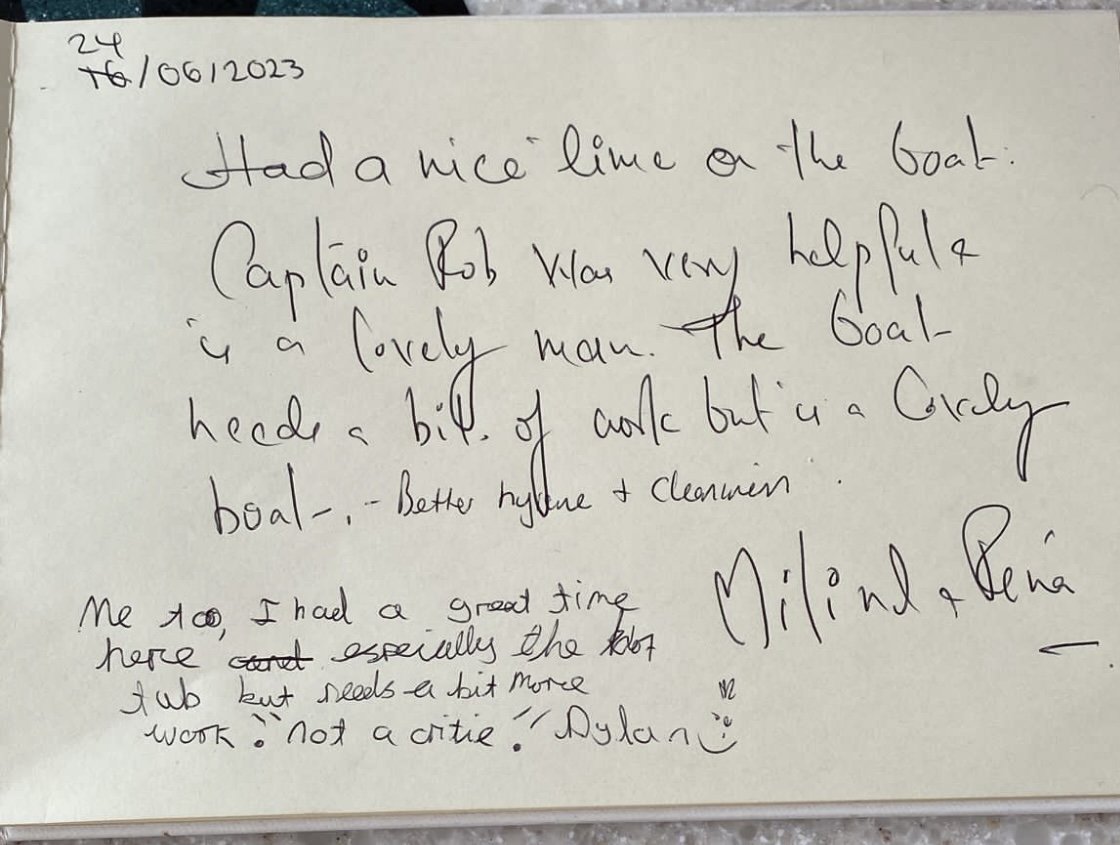 24
16/06/2023
Had a nice time on the boat.
Captain Rob was very helpful &
is a lovely man. The boat
needs a bit. of work but is a lovely
boat. - Better hygene + cleanniess.
Milind + Rena
Me too, I had a great time
here and especially the hot
tub but needs a bit more
work! "not a critic!" Dylan